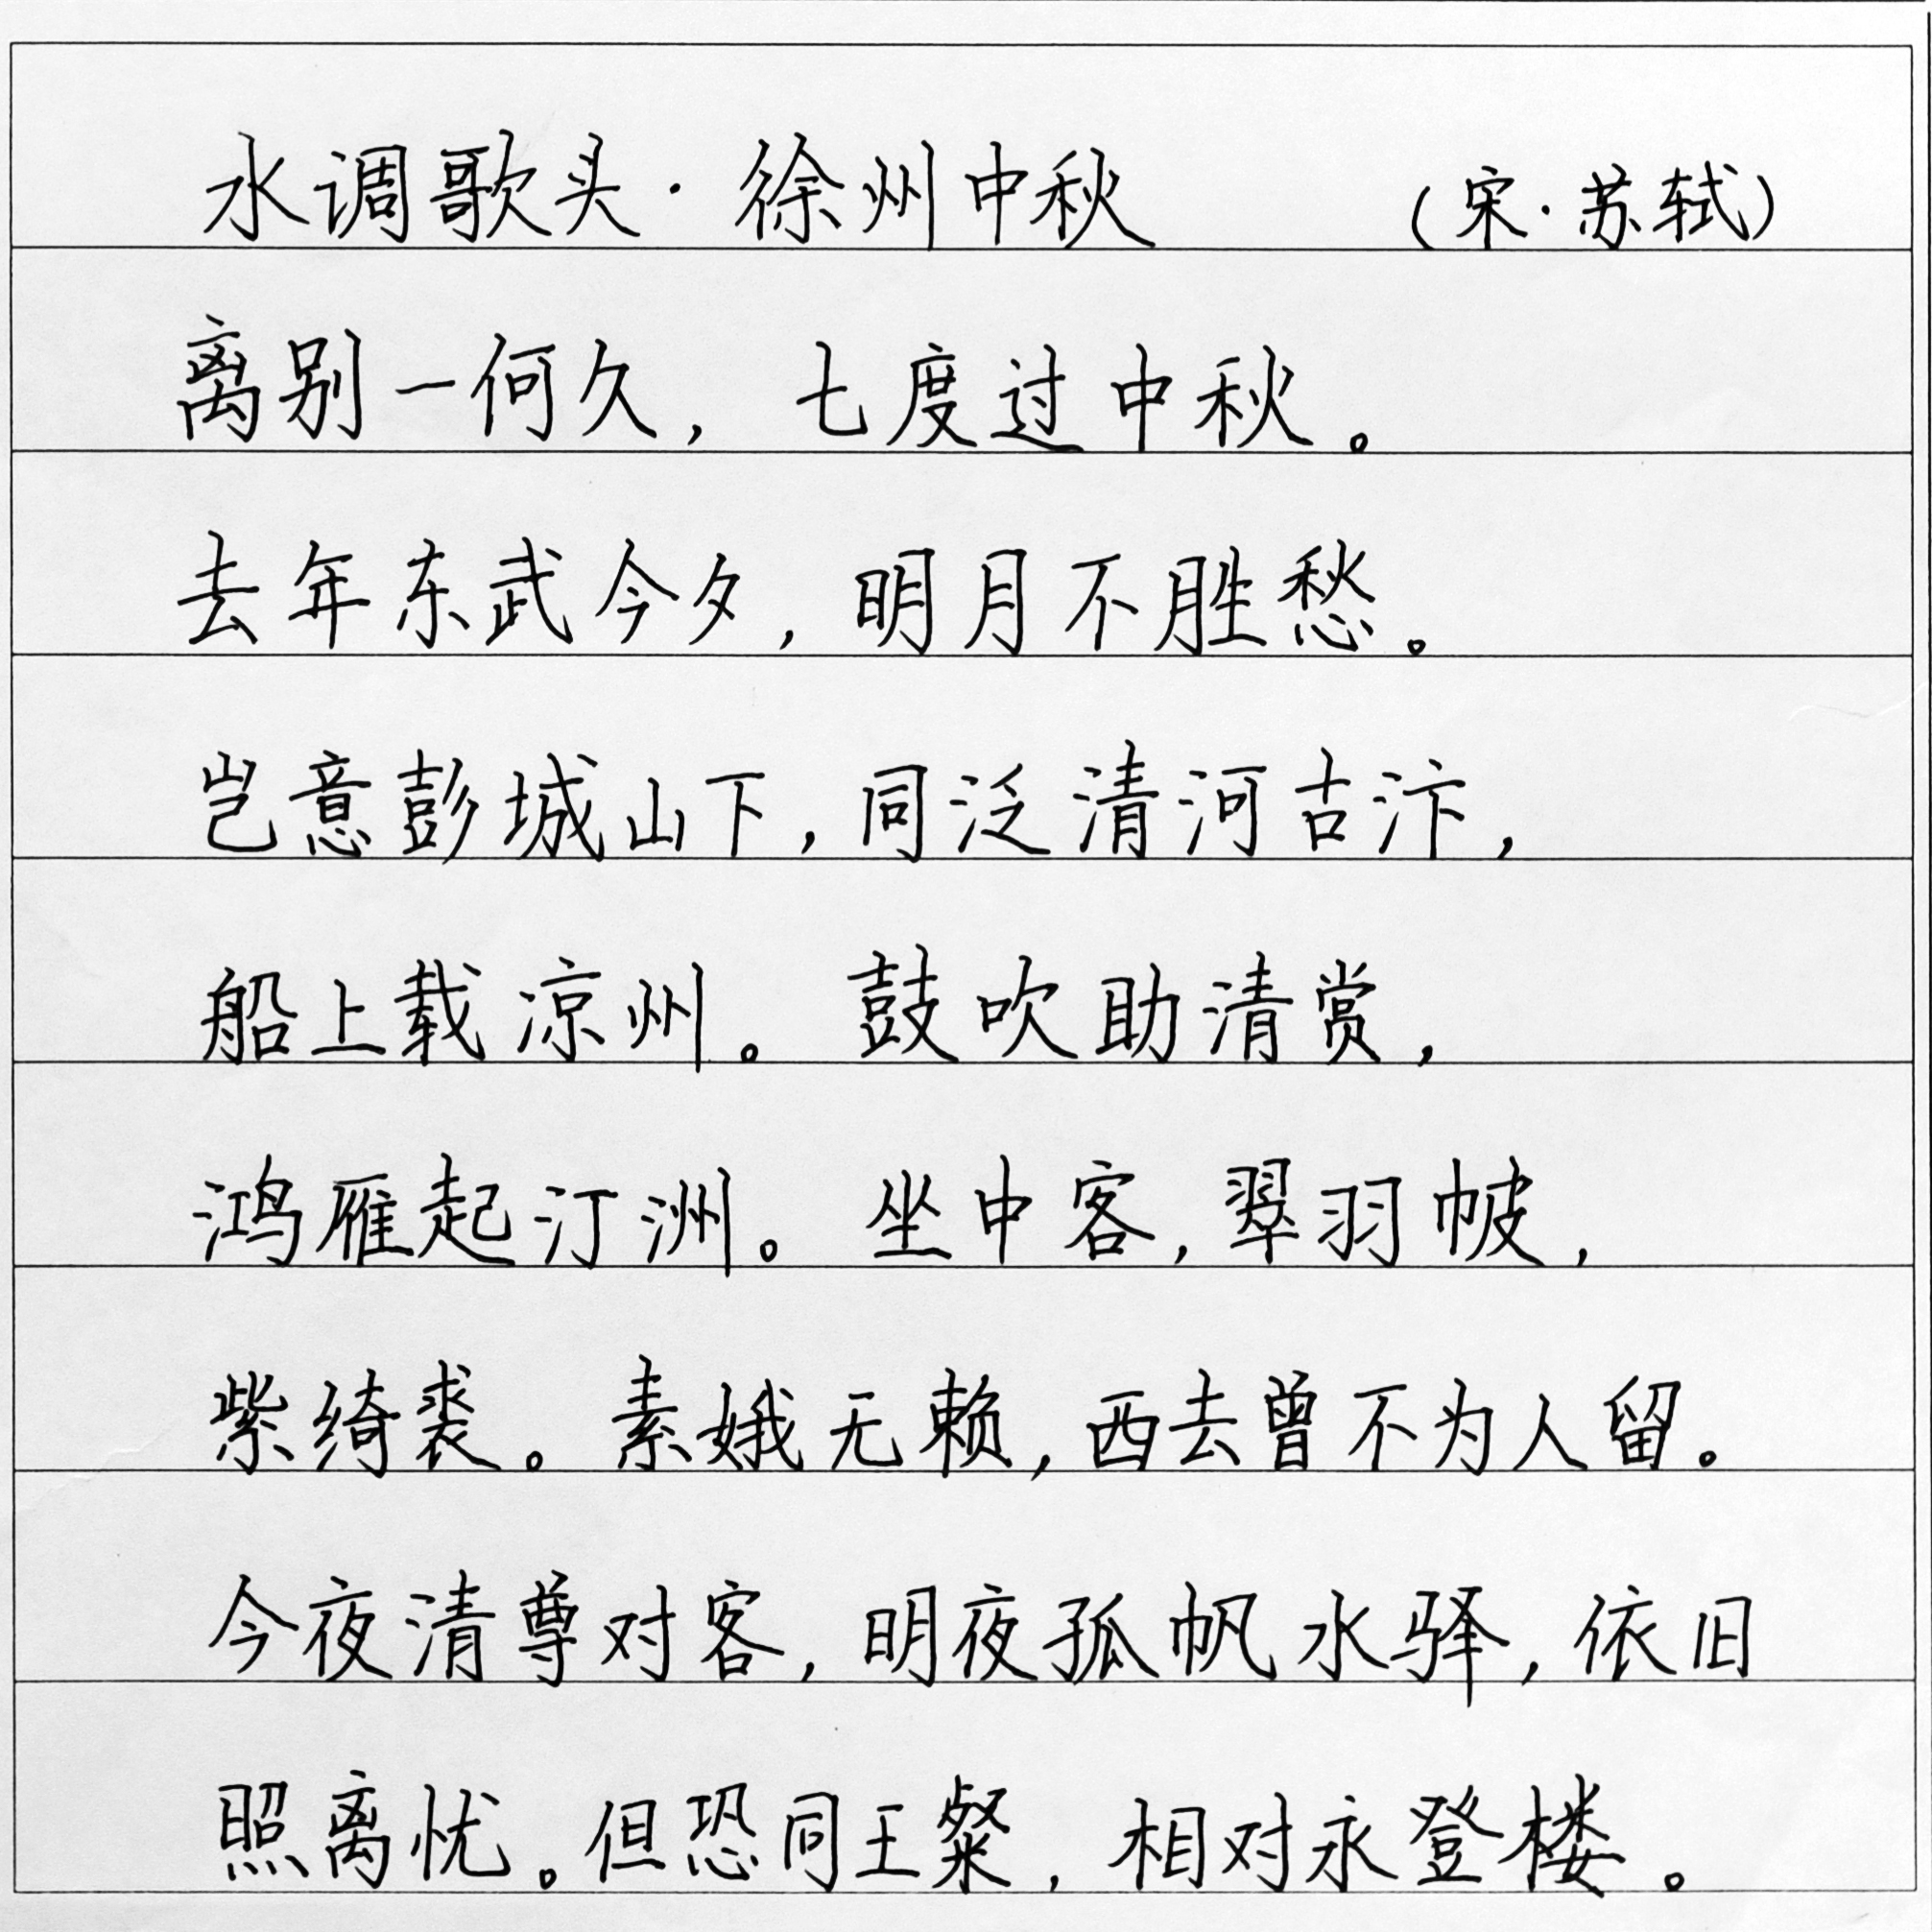 水调歌头·徐州中秋 (宋·苏轼)
离别一何久，七度过中秋。
去年东武今夕，明月不胜愁。
岂意彭城山下，同泛清河古汴，
船上载凉州。鼓吹助清赏，
鸿雁起汀洲。坐中客，翠羽帔，
紫绮裘。素娥无赖，西去曾不为人留。
今夜清尊对客，明夜孤帆水驿，依旧
照离忧。但恐同王粲，相对永登楼。